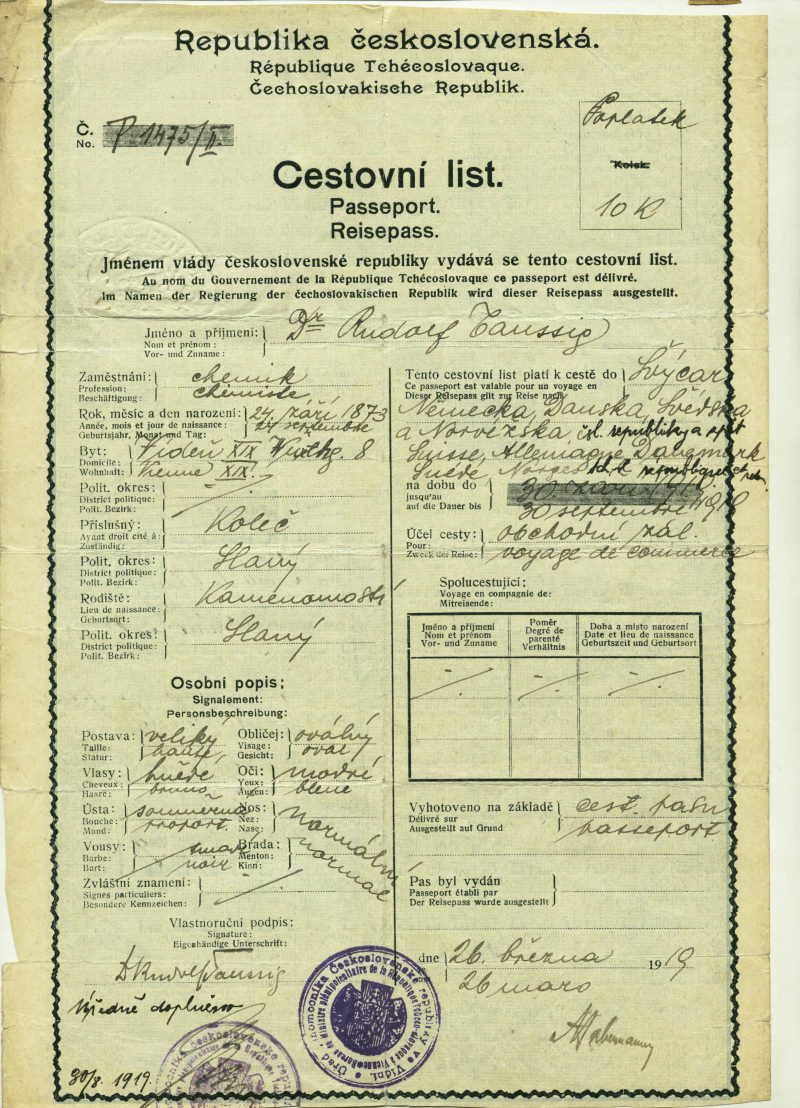 Republika československá.
République Tchécoslovaque.
Čechoslovakische Republik.
Č.
No.
P. 1475/II.
Poplatek
Kolek.
10 K
Cestovní list.
Passeport.
Reisepass.
Jménem vlády československé republiky vydává se tento cestovní list.
Au nom du Gouvernement de la République Tchécoslovaque ce passeport est délivré.
Im Namen der Regierung der čechoslovakischen Republik wird dieser Reisepass ausgestellt.
Jméno a příjmení:
Nom et prénom:
Vor- und Zuname:
Dr Rudolf Taussig
Zaměstnání:
Profession:
Beschäftigung:
chemik
chimiste
Rok, měsíc a den narození:
Année, mois et jour de naissance:
Geburtsjahr, Monat und Tag:
24. září 1873
24 septembre
Byt:
Domicile:
Wohnhaft:
Vídeň XIX 8
Vienne XIX.
Polit. okres:
District politique:
Polit. Bezirk:
Příslušný:
Ayant droit cité à
Zuständig:
Koleč
Polit. okres:
District politique:
Polit. Bezirk:
Slaný
Rodiště:
Lieu de naissance:
Geburtsort:
Polit. okres:
District politique:
Polit. Bezirk:
Slaný
Osobní popis:
Signalement:
Personsbeschreibung:
Postava:
Taille:
Statur:
veliký
haute
Obličej:
Visage:
Gesicht:
oválný
oval
Vlasy:
Cheveux:
Haare:
hnědé
bruns
Oči:
Yeux:
Augen:
modré
bleue
Ústa:
Bouche:
Mund:
souměrná
proport.
Nos:
Nez:
Nase:
normální
normal
Vousy:
Barbe:
Bart:
noir
Brada:
Menton:
Kinn:
Zvláštní znamení:
Signes particuliers:
Besondere Kennzeichen:
Vlastnoruční podpis:
Signature:
Eigenhändige Unterschrift:
Dr Rudolf Taussig
Úředně doplněno
30/8. 1919.
Tento cestovní list platí k cestě do
Ce passeport est valable pour un voyage en
Dieser Reisepass gilt zur Reise nach
Švýcar
Německa, Danska, Švédska
a Norvéžska, čsl. republiky a zpět
Suisse, Allemagne, Danemark
Suède, Norges
na dobu do
jusqu'au
auf die Dauer bis
30 septembre 1919
Účel cesty:
Pour:
Zweck der Reise:
obchodní zál.
voyage de commerce
Spolucestující:
Voyage en compagnie de:
Mitreisende:
Jméno a příjmení
Nom et prénom
Vor- und Zuname
Poměr
Degré de
parenté
Verhältnis
Doba a místo narození
Date et lieu de naissance
Geburtszeit und Geburtsort
Vyhotoveno na základě
Délivré sur
Ausgestellt auf Grund
cest. pasu
passeport
Pas byl vydán
Passeport établi par
Der Reisepass wurde ausgestellt
dne
26. března 1919
26 mars